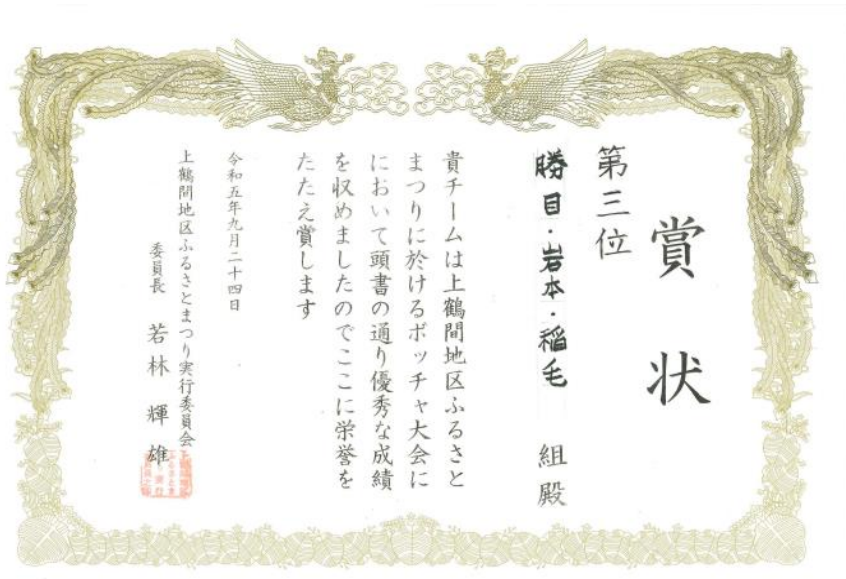 賞状
第三位
勝目・岩本・稲毛 組殿
貴チームは上鶴間地区ふるさと
まつりに於けるボッチャ大会に
において頭書の通り優秀な成績
を収めましたのでここに栄誉を
たたえ賞します
令和五年九月二十四日
上鶴間地区ふるさとまつり実行委員会
委員長 若林輝雄